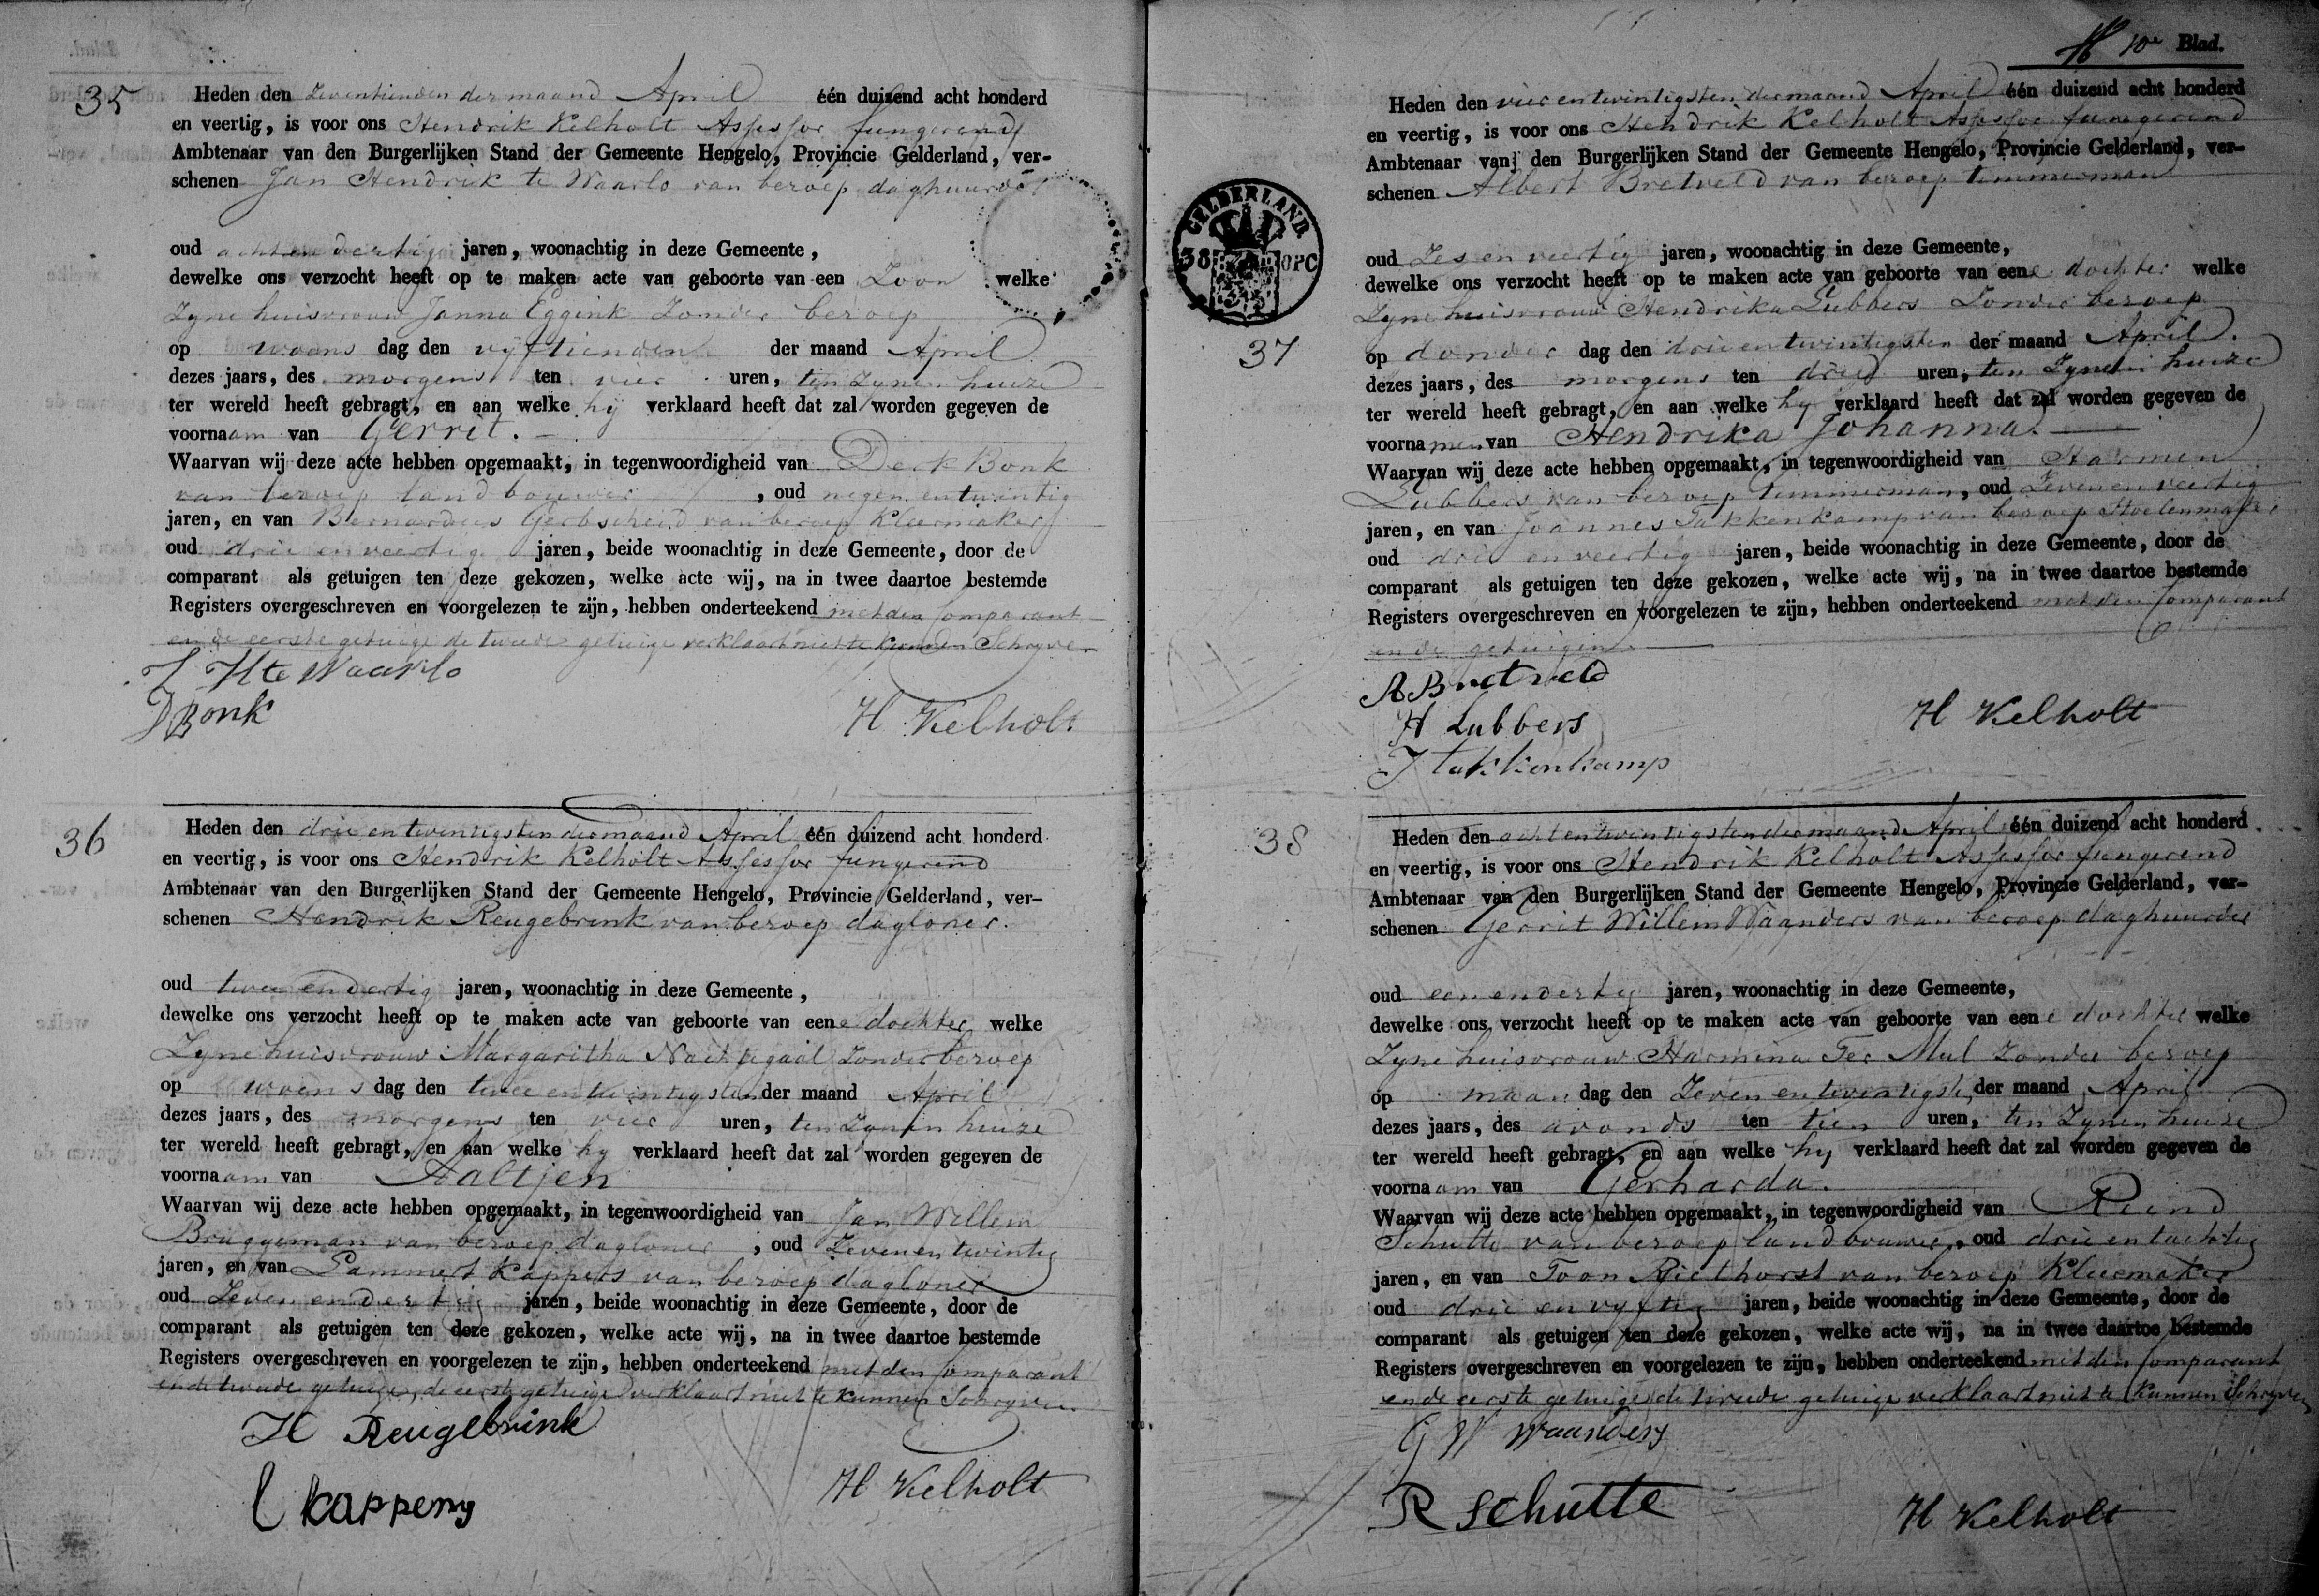 35
Heden den Zeventienden der maand April één duizend acht honderd
en veertig, is voor ons Hendrik Kelholt Assessor fungerend
Ambtenaar van den Burgerlijken Stand der Gemeente Hengelo, Provincie Gelderland, ver-
schenen Jan Hendrik te Waarlo van beroep daghuurder
oud acht en dertig jaren, woonachtig in deze Gemeente,
dewelke ons verzocht heeft op te maken acte van geboorte van een Zoon welke
Zyne huisvrouw Janna Eggink Zonder beroep
op woens dag den vyftienden der maand April
dezes jaars, des morgens ten vier uren, ten Zynen huize
ter wereld heeft gebragt, en aan welke hy verklaard heeft dat zal worden gegeven de
voornaam van Gerrit.
Waarvan wij deze acte hebben opgemaakt, in tegenwoordigheid van Derk Bonk
van beroep landbouwer, oud negen en twintig
jaren, en van Bernardus Gerbscheid van beroep Kleermaker
oud drie en veertig jaren, beide woonachtig in deze Gemeente, door de
comparant als getuigen ten deze gekozen, welke acte wij, na in twee daartoe bestemde
Registers overgeschreven en voorgelezen te zijn, hebben onderteekend met den Comparant
en de eerste getuige de tweede getuige verklaart niet te kunnen Schryven
J H te Waarlo
D Bonk
H Kelholt
36
Heden den drie en twintigsten der maand April één duizend acht honderd
en veertig, is voor ons Hendrik Kelholt Assessor fungerend
Ambtenaar van den Burgerlijken Stand der Gemeente Hengelo, Provincie Gelderland, ver-
schenen Hendrik Reugebrink van beroep dagloner.
oud twee en dertig jaren, woonachtig in deze Gemeente,
dewelke ons verzocht heeft op te maken acte van geboorte van eene dochter welke
Zyne huisvrouw Margaritha Nachtegaal Zonder beroep
op woens dag den twee en twintigsten der maand April
dezes jaars, des morgens ten vier uren, ten Zynen huize
ter wereld heeft gebragt, en aan welke hy verklaard heeft dat zal worden gegeven de
voornaam van Aaltjen
Waarvan wij deze acte hebben opgemaakt, in tegenwoordigheid van Jan Willem
Bruggeman van beroep dagloner, oud Zeven en twintig
jaren, en van Lammert Kappers van beroep dagloner
oud Zeven en dertig jaren, beide woonachtig in deze Gemeente, door de
comparant als getuigen ten deze gekozen, welke acte wij, na in twee daartoe bestemde
Registers overgeschreven en voorgelezen te zijn, hebben onderteekend met den Comparant
en de tweede getuige, de eerste getuige verklaart niet te kunnen Schryven
H Reugebrink
L Kappers
H Kelholt
10e Blad.
GELDERLAND
38
37
Heden den vier en twintigsten der maand April één duizend acht honderd
en veertig, is voor ons Hendrik Kelholt Assessor fungerend
Ambtenaar van den Burgerlijken Stand der Gemeente Hengelo, Provincie Gelderland, ver-
schenen Albert Bretveld van beroep timmerman
oud Zes en veertig jaren, woonachtig in deze Gemeente,
dewelke ons verzocht heeft op te maken acte van geboorte van eene dochter welke
Zyne huisvrouw Hendrika Lubbers Zonder beroep
op donder dag den drie en twintigsten der maand April.
dezes jaars, des morgens ten drie uren, ten Zynen huize
ter wereld heeft gebragt, en aan welke hy verklaard heeft dat zal worden gegeven de
voornamen van Hendrika Johanna.
Waarvan wij deze acte hebben opgemaakt, in tegenwoordigheid van Harmen
Lubbers van beroep timmerman, oud Zeven en veertig
jaren, en van Joannes Takkenkamp van beroep Stoelenmaker
oud drie en veertig jaren, beide woonachtig in deze Gemeente, door de
comparant als getuigen ten deze gekozen, welke acte wij, na in twee daartoe bestemde
Registers overgeschreven en voorgelezen te zijn, hebben onderteekend met den Comparant
en de getuigen.
A Bretveld
H Lubbers
J takkenkamp
H Kelholt
38
Heden den acht en twintigsten der maand April één duizend acht honderd
en veertig, is voor ons Hendrik Kelholt Assessor fungerend
Ambtenaar van den Burgerlijken Stand der Gemeente Hengelo, Provincie Gelderland, ver-
schenen Gerrit Willem Waanders van beroep daghuurder
oud een en dertig jaren, woonachtig in deze Gemeente,
dewelke ons verzocht heeft op te maken acte van geboorte van eene dochter welke
Zyne huisvrouw Harmina Ter Mul Zonder beroep
op maan dag den Zeven en twintigsten der maand April
dezes jaars, des avonds ten tien uren, ten Zynen huize
ter wereld heeft gebragt, en aan welke hy verklaard heeft dat zal worden gegeven de
voornaam van Gerharda.
Waarvan wij deze acte hebben opgemaakt, in tegenwoordigheid van Reind
Schutte van beroep landbouwer, oud drie en tachtig
jaren, en van Toon Riethorst van beroep Kleermaker
oud drie en vyftig jaren, beide woonachtig in deze Gemeente, door de
comparant als getuigen ten deze gekozen, welke acte wij, na in twee daartoe bestemde
Registers overgeschreven en voorgelezen te zijn, hebben onderteekend met den Comparant
en de eerste getuige de tweede getuige verklaart niet te kunnen Schryven
G W Waanders
R Schutte
H Kelholt